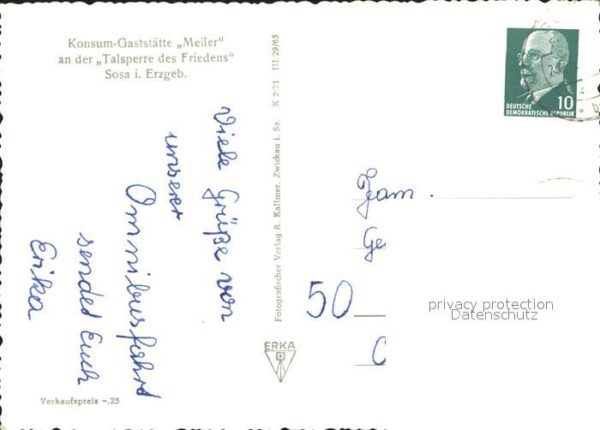 Konsum-Gaststätte „Meiler“
an der „Talsperre des Friedens“
Sosa i. Erzgeb.
Viele Grüße von
unserer
Omnibusfahrt
sendet Euch
Erika
Verkaufspreis -,25
Fotografischer Verlag R. Kallmer, Zwickau i. Sa. K 2/71 III/29/65
ERKA
10
DEUTSCHE
DEMOKRATISCHE REPUBLIK
Fam.
Ge
50
C
privacy protection
Datenschutz